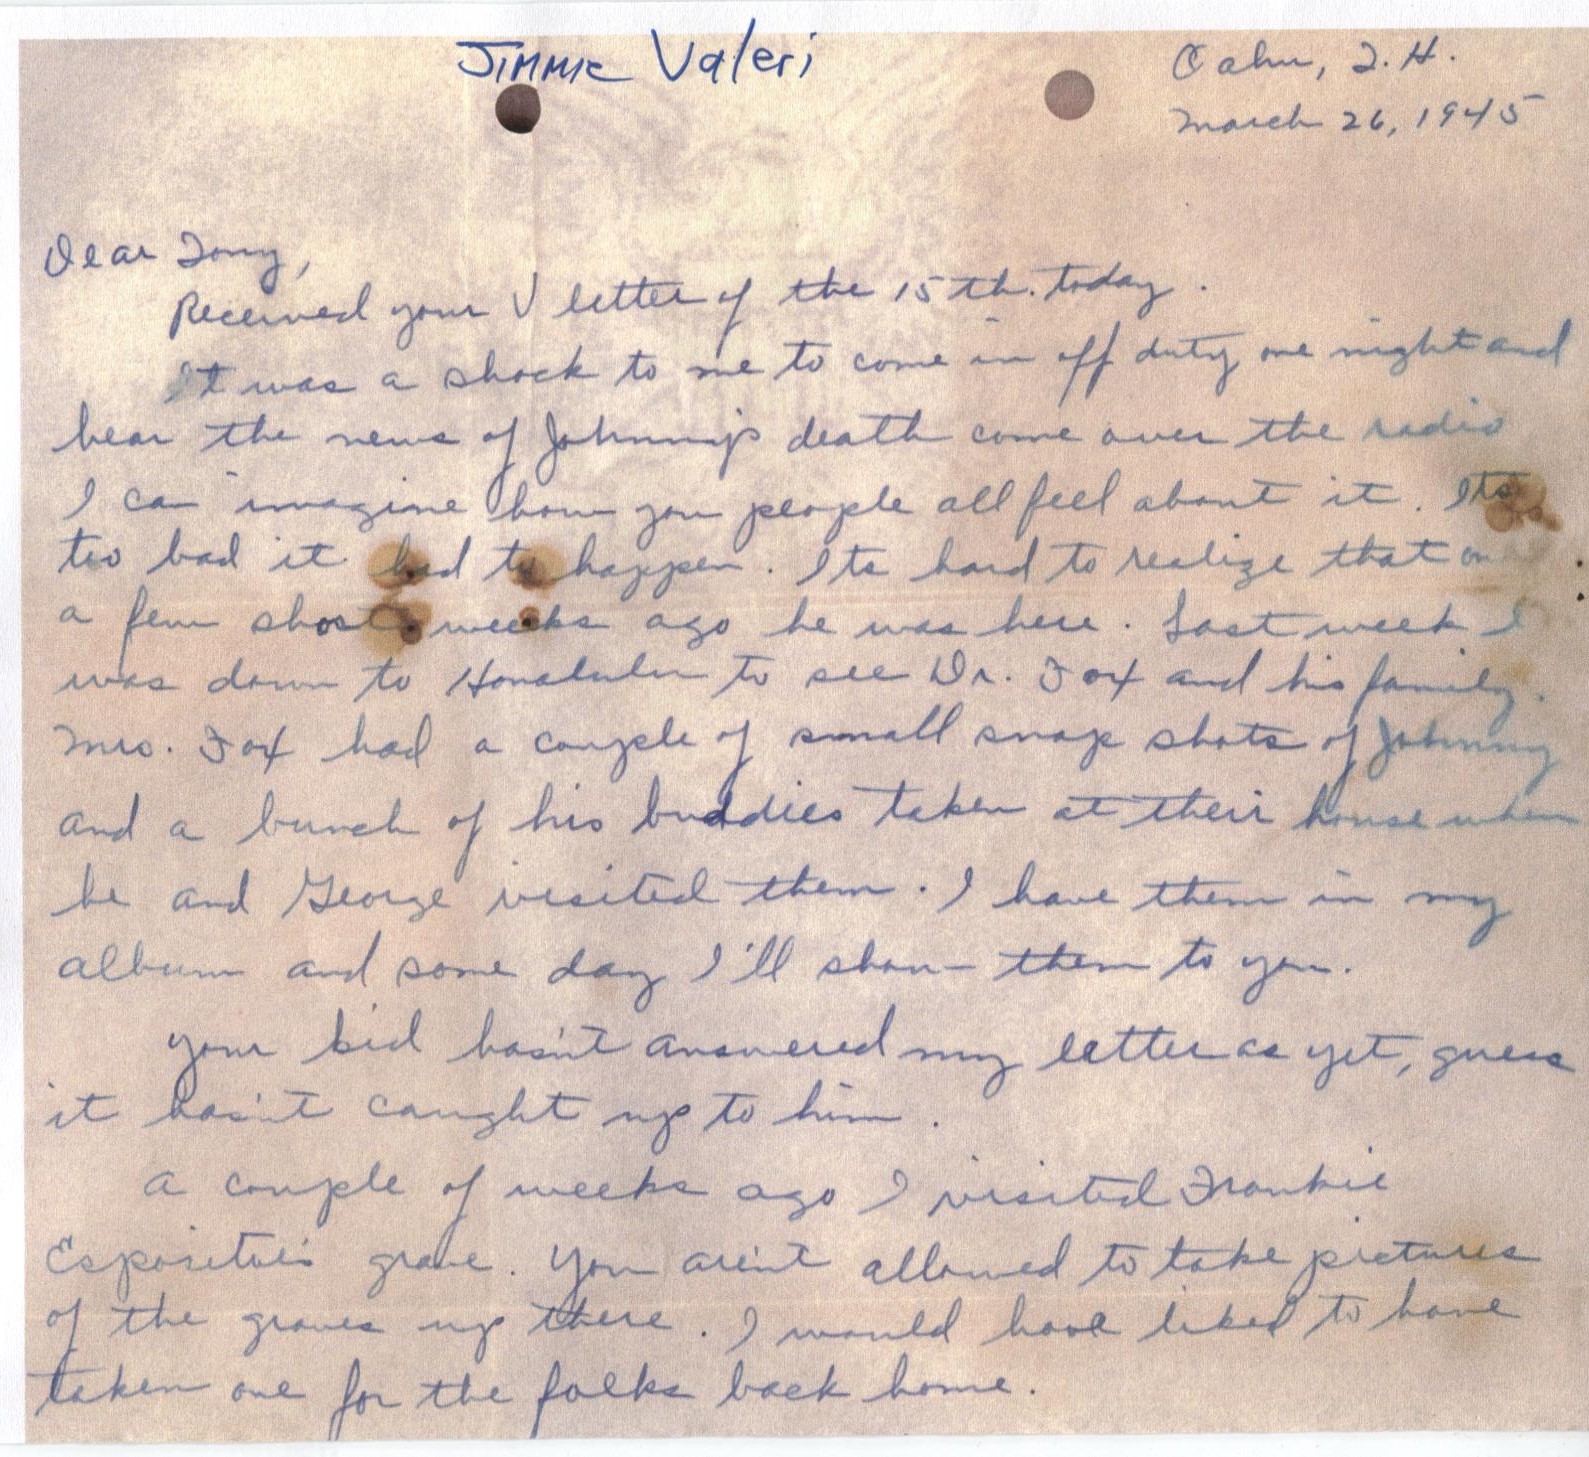 JIMMIE Valeri
Oahu, T.H.
March 26, 1945
Dear Tony,
Received your V letter of the 15th. today.
It was a shock to me to come in off duty one night and
hear the news of Johnny's death come over the radio
I can imagine how you people all feel about it. Its
too bad it had to happen. Its hard to realize that
a few short weeks ago he was here. Last week I
was down to Honolulu to see Dr. Fox and his family.
Mrs. Fox had a couple of small snap shots of Johnny
and a bunch of his buddies taken at their house when
he and George visited them. I have them in my
album and some day I'll show them to you.
Your kid hasn't answered my letter as yet, guess
it hasn't caught up to him.
A couple of weeks ago I visited Frankie
Esposito's grave. You aren't allowed to take pictures
of the graves up there. I would have liked to have
taken one for the folks back home.